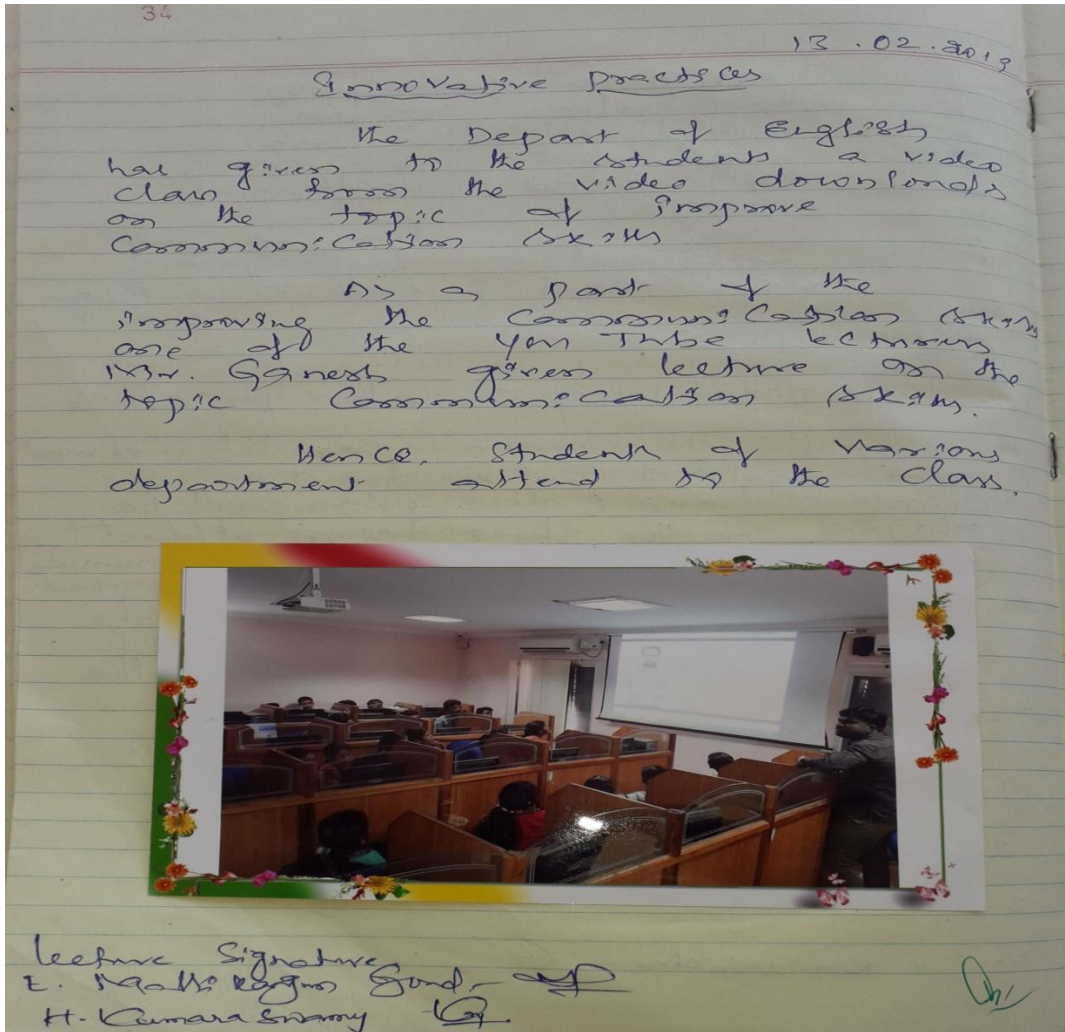 34
13.02.2019
Innovative Practices
The Depart of English
has given to the students a video
class from the video downloads
on the topic of improve
Communication skills
As a part of the
improving the Communication skills
one of the You Tube lectures
Mr. Ganesh given lecture on the
topic Communication skills.
Hence, Students of various
department attend to the class.
Lecture Signature
E. Gond
H. Kumara Swamy